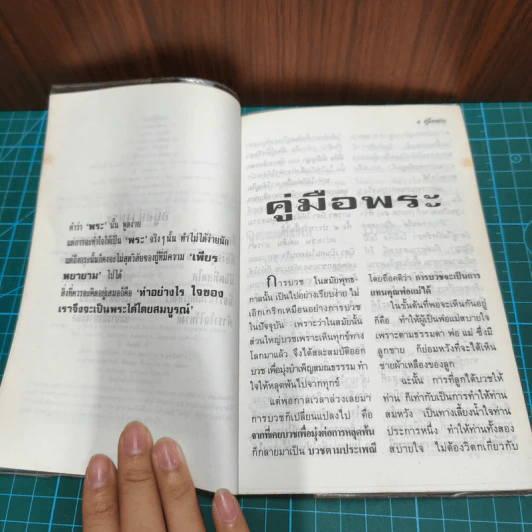 คำว่า 'พระ' นั้น พูดง่าย
แต่การจะทำใจให้เป็น 'พระ' จริงๆ นั้น ทำไม่ได้ง่ายนัก
แต่ถึงกระนั้นก็คงจะไม่สุดวิสัยของผู้ที่มีความ 'เพียร
พยายาม' ไปได้
สิ่งที่ควรจะคิดอยู่เสมอก็คือ 'ทำอย่างไร ใจของ
เราจึงจะเป็นพระได้โดยสมบูรณ์'
คู่มือพระ
การบวช ในสมัยพุทธ-
กาลนั้น เป็นไปอย่างเรียบง่าย ไม่
เอิกเกริกเหมือนอย่างการบวช
ในปัจจุบัน เพราะว่าในสมัยนั้น
ส่วนใหญ่บวชเพราะเห็นทุกข์ทาง
โลกมาแล้ว จึงได้สละสมบัติออก
บวช เพื่อมุ่งบำเพ็ญสมณธรรม ทำ
ใจให้หลุดพ้นไปจากทุกข์
แต่พอกาลเวลาล่วงเลยมา
การบวชก็เปลี่ยนแปลงไป คือ
จากที่เคยบวชเพื่อมุ่งต่อการหลุดพ้น
ก็กลายมาเป็น บวชตามประเพณี
โดยถือคติว่า การบวชจะเป็นการ
แทนคุณพ่อแม่ได้
ในขั้นต้นที่พอจะเห็นกันอยู่
ก็คือ ทำให้ผู้เป็นพ่อแม่สบายใจ
เพราะตามธรรมดา พ่อ แม่ ซึ่งมี
ลูกชาย ก็ย่อมหวังที่จะได้เห็น
ชายผ้าเหลืองของลูก
ฉะนั้น การที่ลูกได้บวชให้
ท่าน ก็เท่ากับเป็นการทำให้ท่าน
สมหวัง เป็นทางเลี้ยงน้ำใจท่าน
ประการหนึ่ง ทำให้ท่านทั้งสอง
สบายใจ ไม่ต้องวิตกเกี่ยวกับ